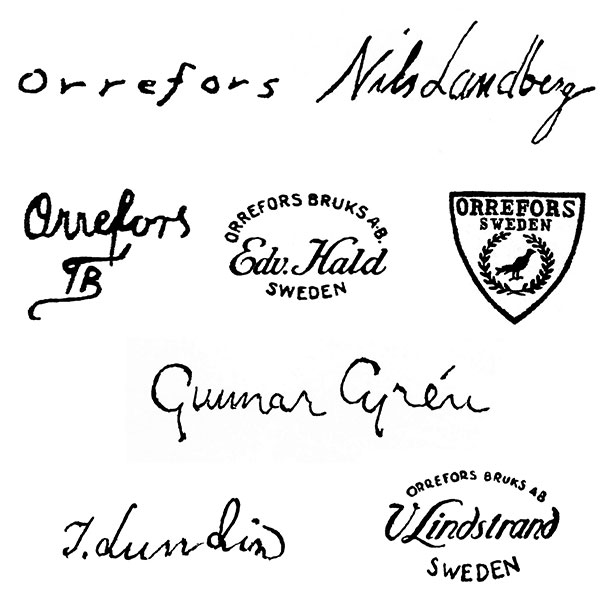 Orrefors
Nils Landberg
Orrefors
ORREFORS BRUKS A-B.
Edv. Hald
SWEDEN
ORREFORS
SWEDEN
Gunnar Cyrén
I. Lundin
ORREFORS BRUKS AB
V Lindstrand
SWEDEN